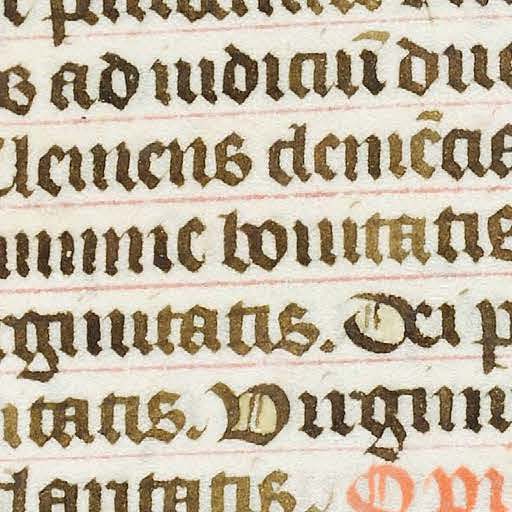 s ad iudiciū duc
Clemens clemēcie
anime bonitatis
rginitatis. Dei p
itatis. Virgini
laritatis. O pi